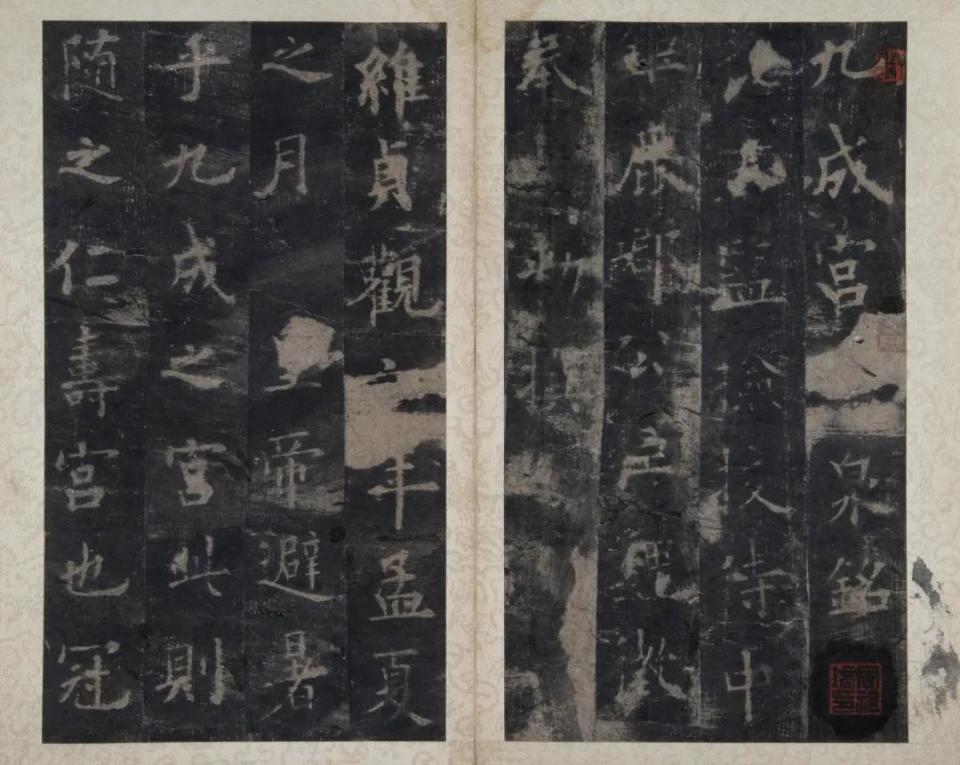 九成宮泉銘
監檢校侍中
鹿郡公臣魏徵
奉勅撰
維貞觀六年孟夏
之月皇帝避暑
乎九成之宮此則
隨之仁壽宮也冠